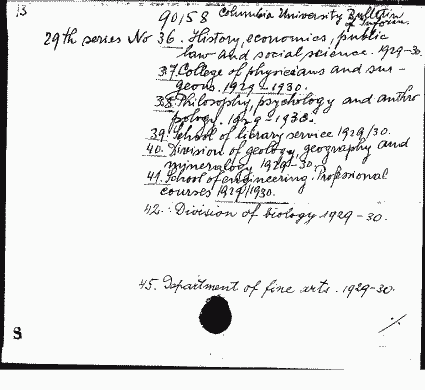 B
90158 Columbia University Bulletin
of Inform.
29th series No 36. History, economics, public
law and social science. 1929-30.
37. College of physicians and sur-
geons. 1929-1930.
38. Philosophy, psychology and anthro
pology. 1929-1930.
39. School of library service 1929/30.
40. Division of geology, geography and
mineralogy 1929-30.
41. School of engineering. Professional
courses 1929/1930.
42. Division of biology 1929-30.
45. Department of fine arts. 1929-30.
S